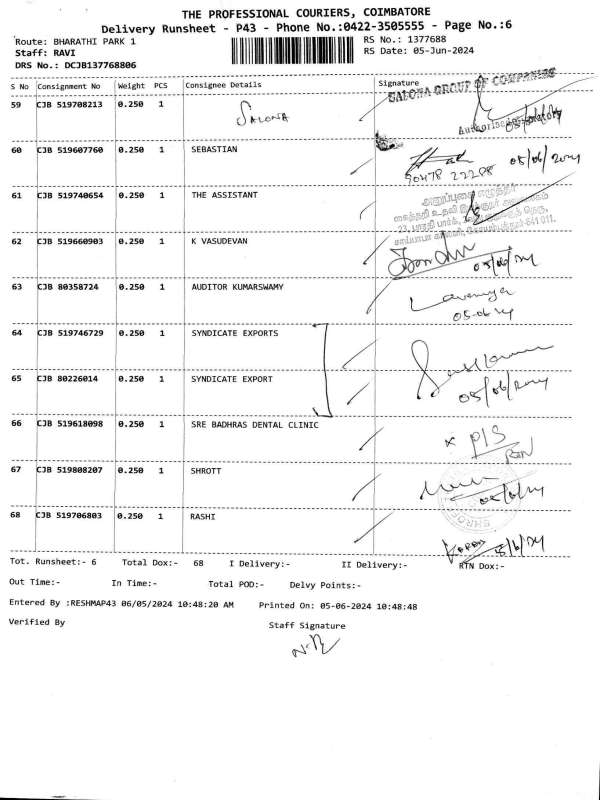 THE PROFESSIONAL COURIERS, COIMBATORE
Delivery Runsheet - P43 - Phone No.:0422-3505555 - Page No.:6
Route: BHARATHI PARK 1
RS No.: 1377688
Staff: RAVI
RS Date: 05-Jun-2024
DRS No.: DCJB137768806
S No Consignment No Weight PCS Consignee Details Signature
SALONA GROUP OF COMPANIES
59 CJB 519708213 0.250 1 SALONA
Authorised Signatory
60 CJB 519607760 0.250 1 SEBASTIAN 05/06/2024
90478 22208
61 CJB 519740654 0.250 1 THE ASSISTANT
62 CJB 519660903 0.250 1 K VASUDEVAN
05/06/24
63 CJB 80358724 0.250 1 AUDITOR KUMARSWAMY
Lavanya
05-06-24
64 CJB 519746729 0.250 1 SYNDICATE EXPORTS
65 CJB 80226014 0.250 1 SYNDICATE EXPORT
05/06/2024
66 CJB 519618098 0.250 1 SRE BADHRAS DENTAL CLINIC
x P/S
RTN
67 CJB 519808207 0.250 1 SHROTT
68 CJB 519706803 0.250 1 RASHI
5/6/24
Tot. Runsheet:- 6 Total Dox:- 68 I Delivery:- II Delivery:- RTN Dox:-
Out Time:- In Time:- Total POD:- Delvy Points:-
Entered By :RESHMAP43 06/05/2024 10:48:20 AM Printed On: 05-06-2024 10:48:48
Verified By Staff Signature